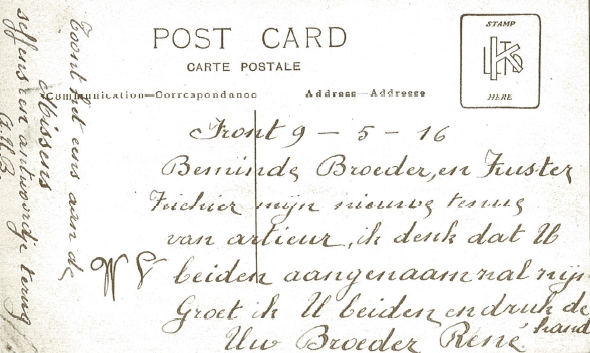 POST CARD
CARTE POSTALE
Communication—Correspondance
Address—Adresse
STAMP
HERE
Front 9 - 5 - 16
Beminde Broeder, en Zuster
Ziehier mijn nieuwe tenue
van artieur, ik denk dat U
beiden aangenaam zal zijn
Groet ik U beiden en druk de
hand
Uw Broeder René
Toont het eens aan de
Missens
seffens en antwoordje terug